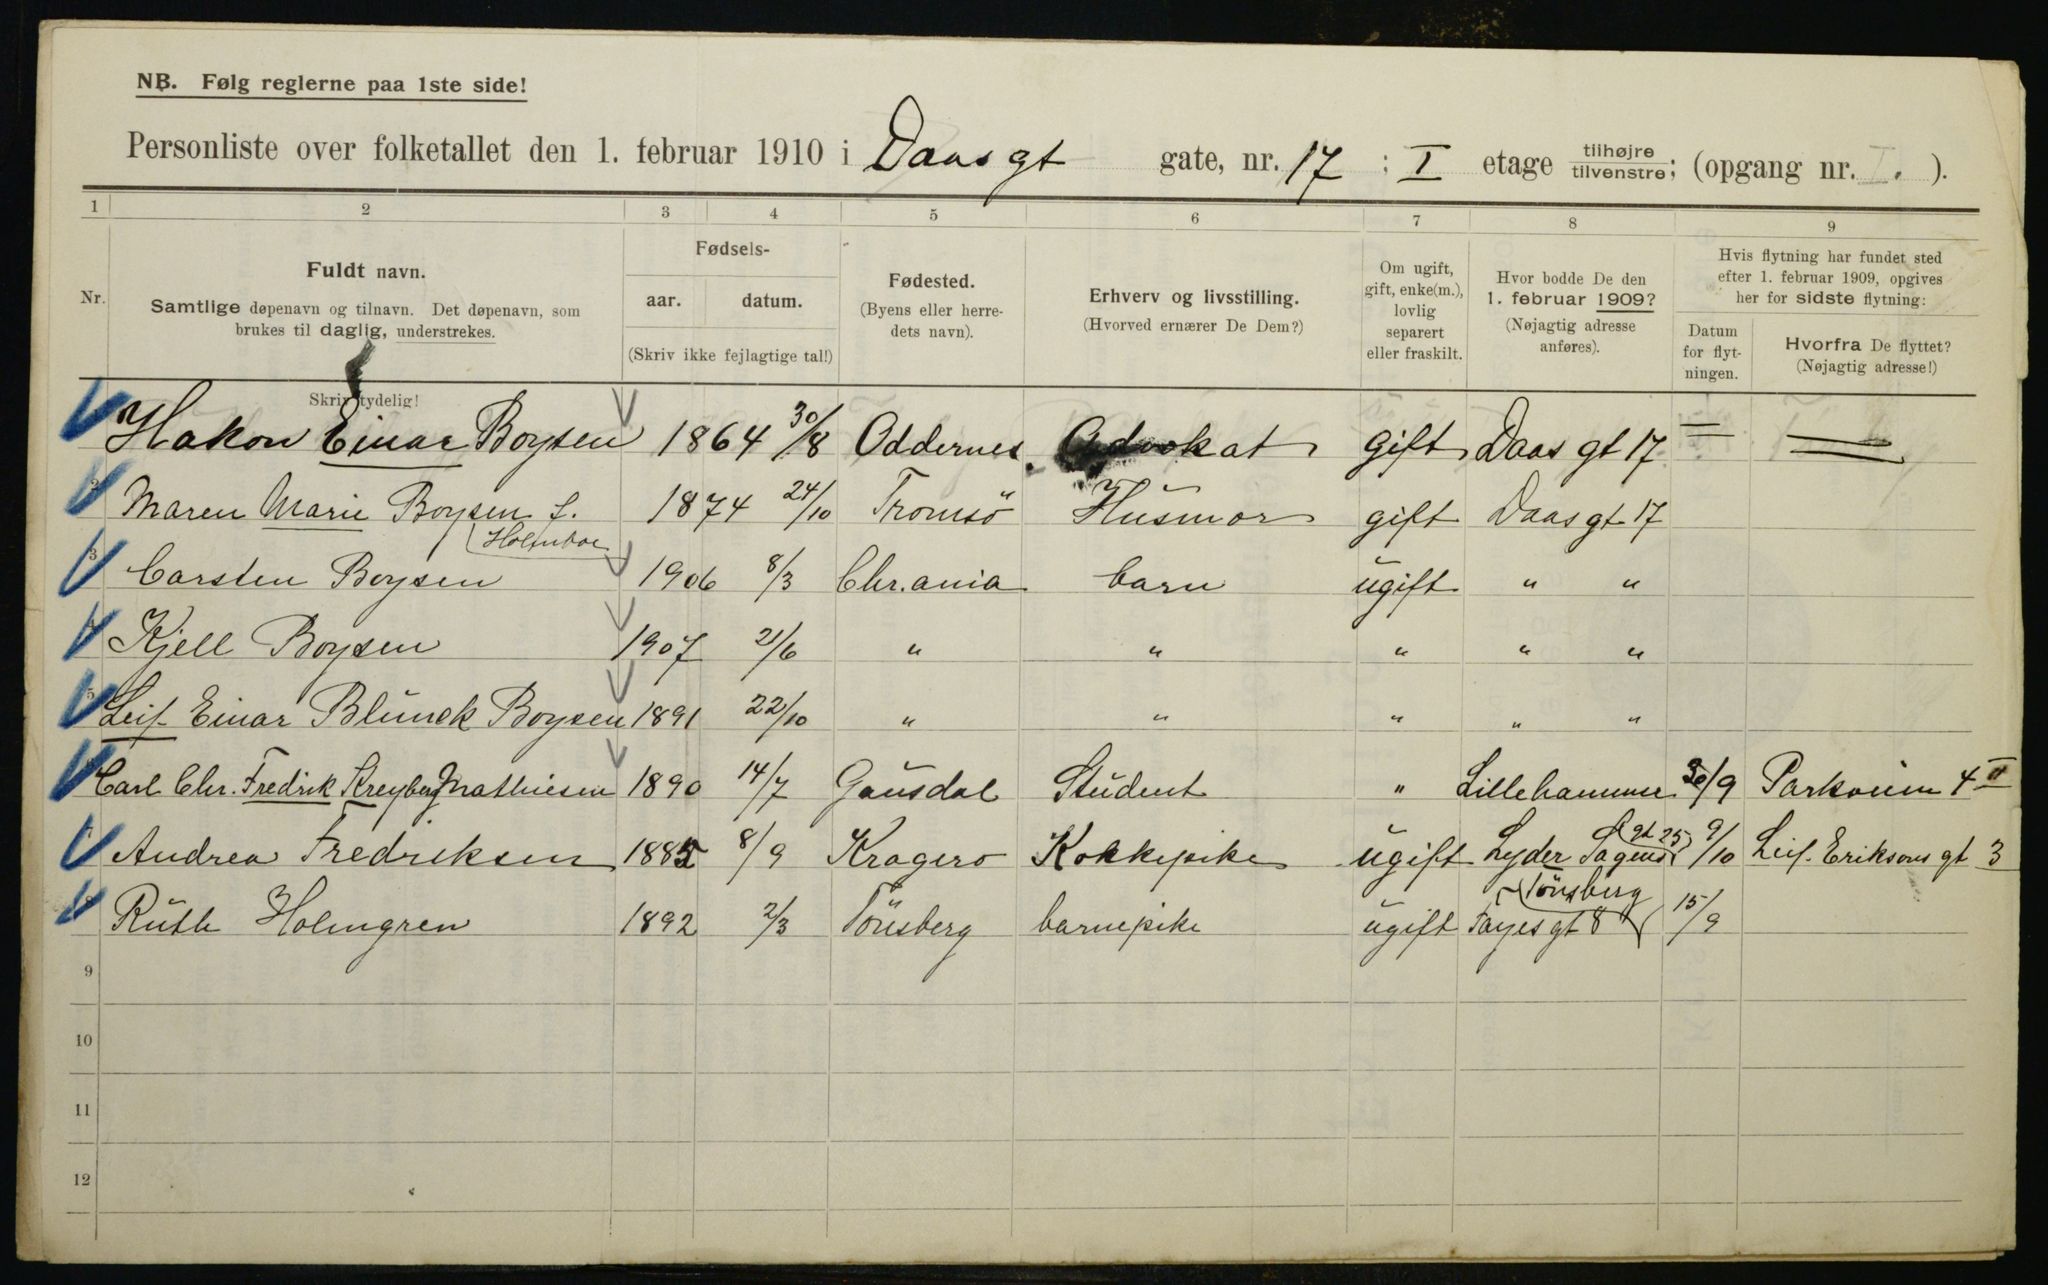 NB. Følg reglerne paa 1ste side!
Personliste over folketallet den 1. februar 1910 i Daas gt gate, nr. 17 : I etage tilhøjre tilvenstre; (opgang nr. I. ).
1 2 3 4 5 6 7 8 9
Nr.
Fuldt navn.
Samtlige døpenavn og tilnavn. Det døpenavn, som
brukes til daglig, understrekes.
Skriv tydelig!
Fødsels-
aar. datum.
(Skriv ikke fejlagtige tal!)
Fødested.
(Byens eller herre-
dets navn).
Erhverv og livsstilling.
(Hvorved ernærer De Dem?)
Om ugift,
gift, enke(m.),
lovlig
separert
eller fraskilt.
Hvor bodde De den
1. februar 1909?
(Nøjagtig adresse
anføres).
Hvis flytning har fundet sted
efter 1. februar 1909, opgives
her for sidste flytning:
Datum
for flyt-
ningen.
Hvorfra De flyttet?
(Nøjagtig adresse!)
Hakon Einar Boysen 1864 30/8 Oddernes Advokat gift Daas gt 17 =
2 Maren Marie Boysen f. 1874 24/10 Tromsö Husmor gift Daas gt 17
Holmboe
3 Carsten Boysen 1906 8/3 Chr.ania barn ugift " "
4 Kjell Boysen 1907 21/6 " " " " "
5 Leif Einar Blunck Boysen 1891 22/10 " " " " "
6 Carl Chr. Fredrik Kreyberg Mathiesen 1890 14/7 Gausdal Student " Lillehammer 30/9 Parkveien 4 II
7 Andrea Fredriksen 1885 8/9 Kragerø Kokkepike ugift Lyder Sagens gt 25 9/10 Leif Eriksons gt 3
8 Ruth Holmgren 1892 2/3 Tönsberg barnepike ugift Fayes gt 8 Tönsberg 15/9
9
10
11
12